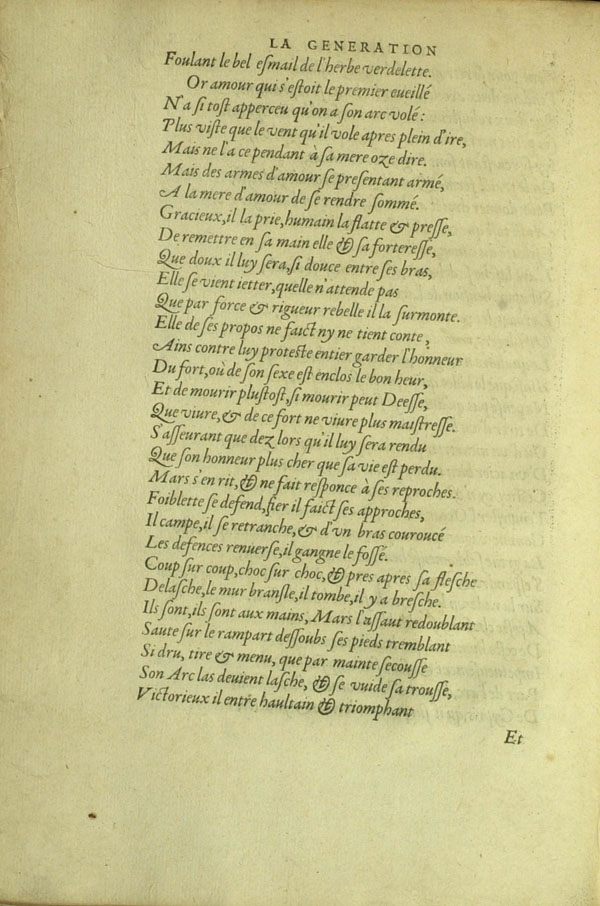 LA GENERATION
Foulant le bel eſmail de l'herbe verdelette.
Or amour qui s'eſtoit le premier eueillé
N'a ſi toſt apperceu qu'on a ſon arc volé:
Plus viſte que le vent qu'il vole apres plein d'ire,
Mais ne l'a ce pendant à ſa mere oze dire.
Mais des armes d'amour ſe preſentant armé,
A la mere d'amour de ſe rendre ſommé.
Gracieux, il la prie, humain la flatte & preſſe,
De remettre en ſa main elle & ſa fortereſſe,
Que doux il luy ſera, ſi douce entre ſes bras,
Elle ſe vient ietter, quelle n'attende pas
Que par force & rigueur rebelle il la ſurmonte.
Elle de ſes propos ne faict ny ne tient conte,
Ains contre luy proteſte entier garder l'honneur
Du fort, où de ſon ſexe eſt enclos le bon heur,
Et de mourir pluſtoſt, ſi mourir peut Deeſſe,
Que viure, & de ce fort ne viure plus maiſtreſſe.
S'aſſeurant que dez lors qu'il luy ſera rendu
Que ſon honneur plus cher que ſa vie eſt perdu.
Mars s'en rit, & ne fait reſponce à ſes reproches.
Foiblette ſe defend, fier il faict ſes approches,
Il campe, il ſe retranche, & d'vn bras couroucé
Les defences renuerſe, il gangne le foſſé.
Coup ſur coup, choc ſur choc, & pres apres ſa fleſche
Delaſche, le mur branſle, il tombe, il y a breſche.
Ils ſont, ils ſont aux mains, Mars l'aſſaut redoublant
Saute ſur le rampart deſſoubs ſes pieds tremblant
Si dru, tire & menu, que par mainte ſecouſſe
Son Arc las deuient laſche, & ſe vuide ſa trouſſe,
Victorieux il entre haultain & triomphant
Et